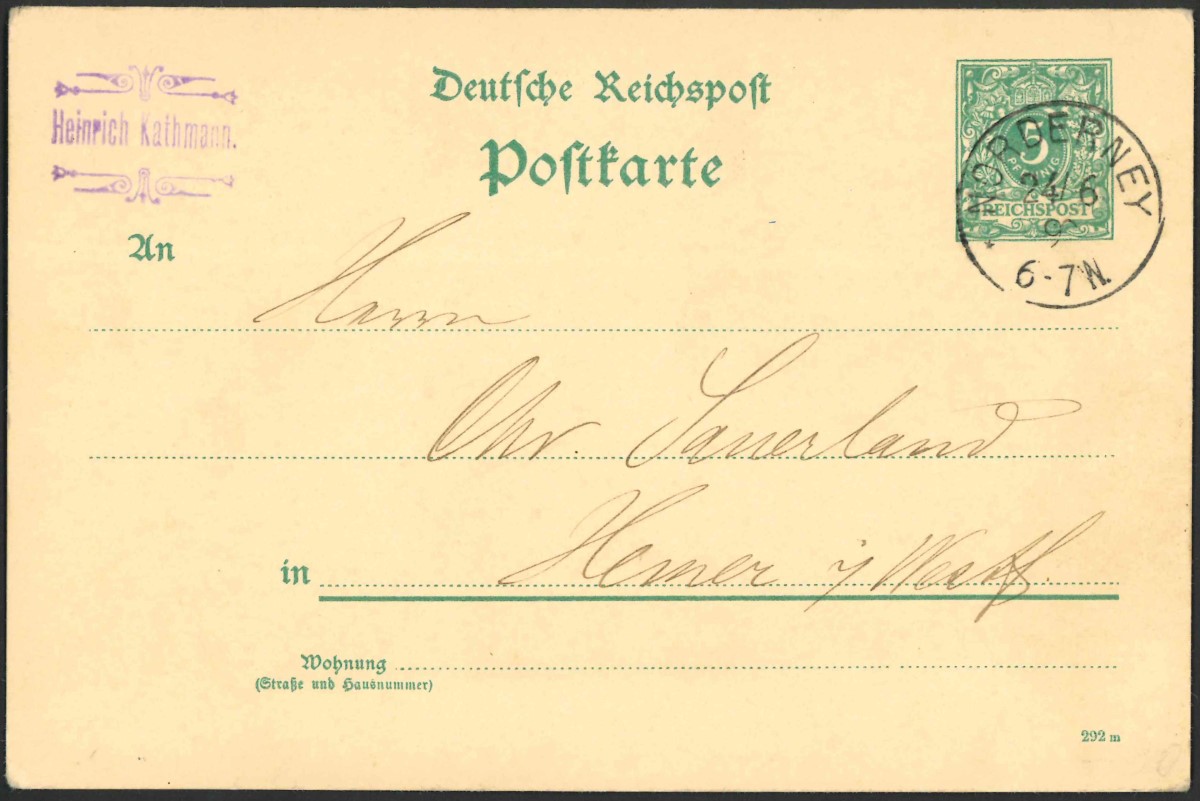 Heinrich Kathmann.
Deutsche Reichspost
Postkarte
5
PFENNIG
REICHSPOST
NORDERNEY
24/6
6-7N.
An
Herrn
Chr. Sauerland
in Hemer i/Westf.
Wohnung
(Straße und Hausnummer)
292 m